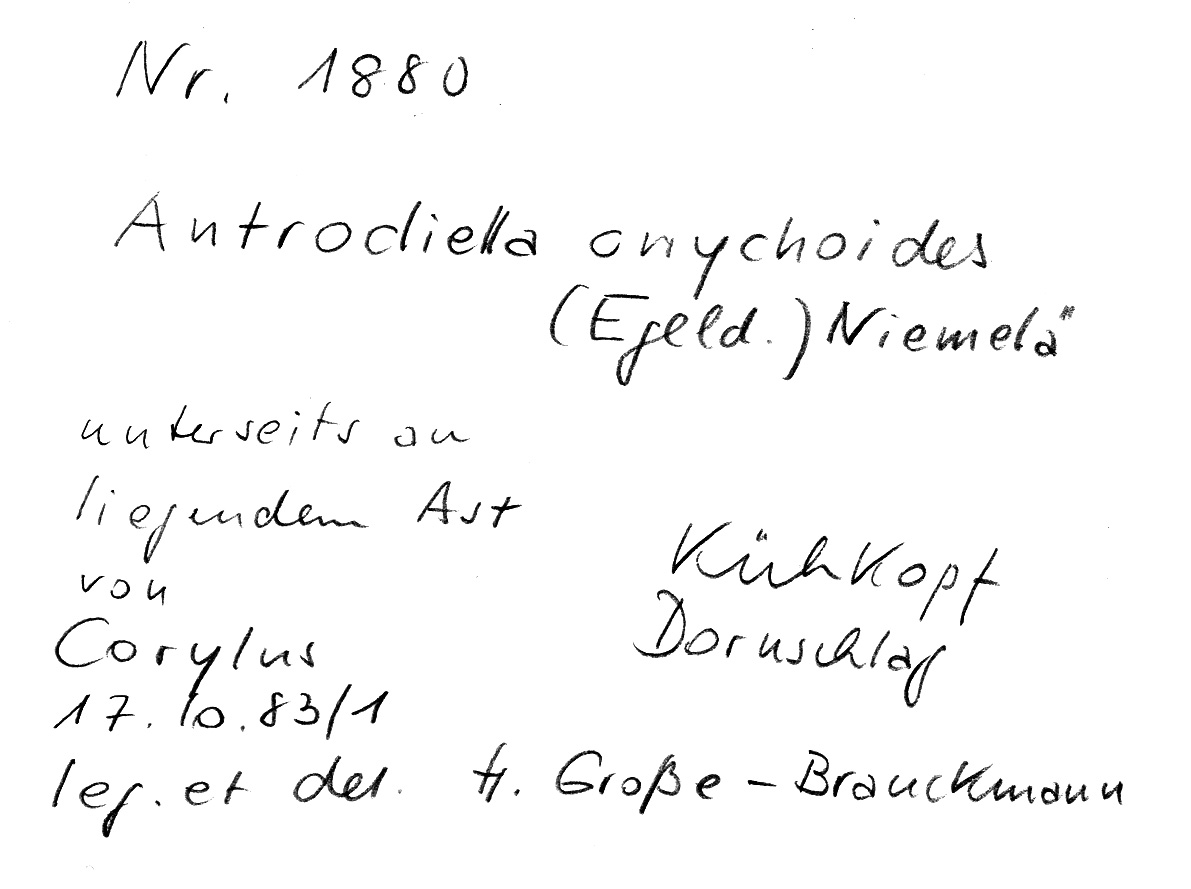 Nr. 1880
Antrodiella onychoides
(Egeld.) Niemelä
unterseits an
liegendem Ast
von
Corylus
17.10.83/1
Kühkopf
Dornschlag
leg. et det. H. Große-Brauckmann